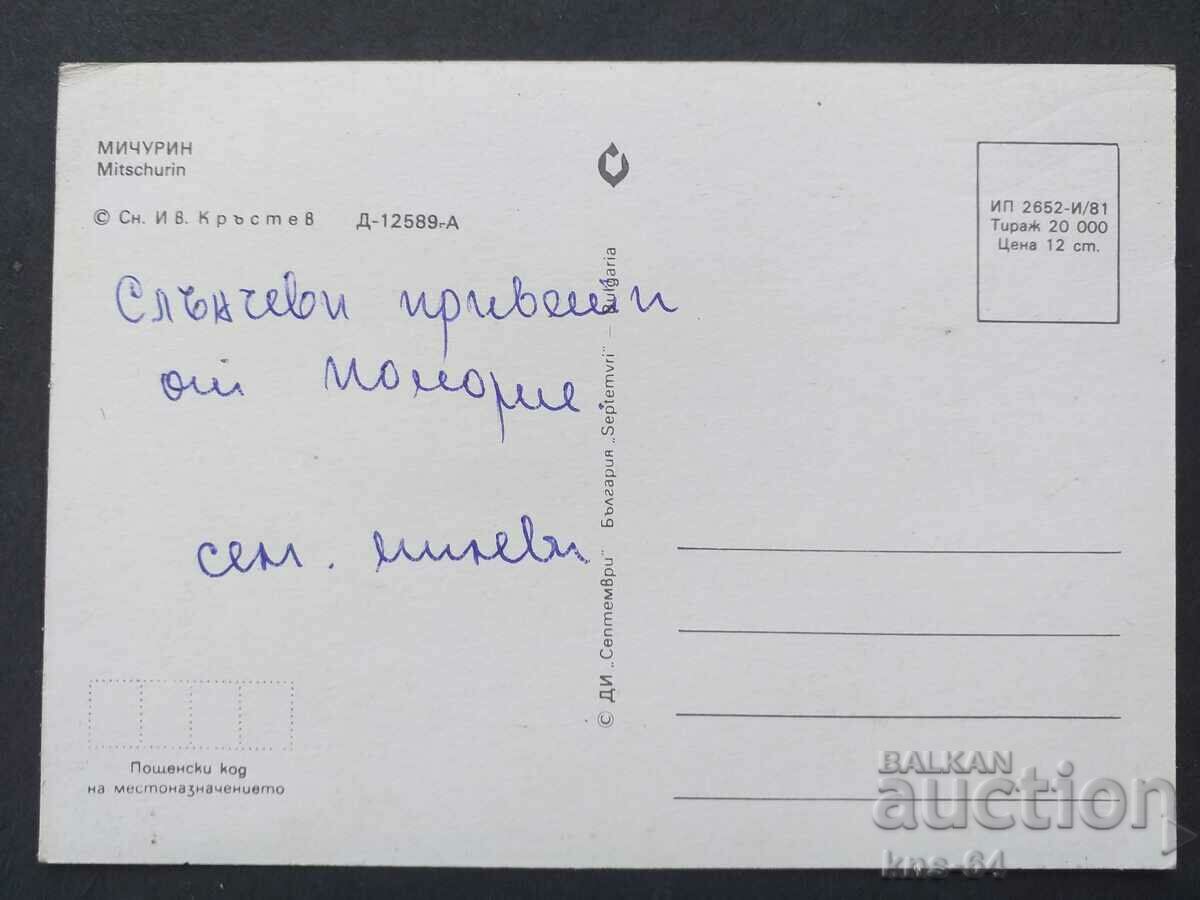 МИЧУРИН
Mitschurin
© Сн. Ив. Кръстев Д-12589-А
Слънчеви привети
от Поморие.
сем. Миневи
Пощенски код
на местоназначението
© ДИ „Септември" България „Septemvri" – Bulgaria
ИП 2652-И/81
Тираж 20 000
Цена 12 ст.
BALKAN
auction
kns-64